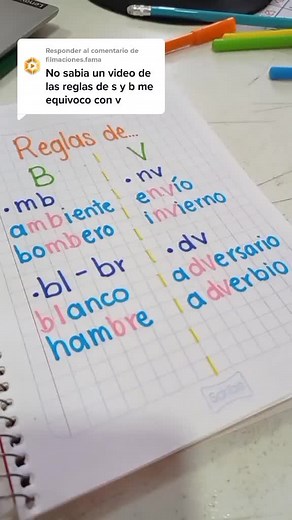 Responder al comentario de
filmaciones.fama
No sabia un video de
las reglas de s y b me
equivoco con v
Reglas de...
B
• mb
ambiente
bombero
• bl - br
blanco
hambre
V
• nv
envío
invierno
• dv
adversario
adverbio
Scribe